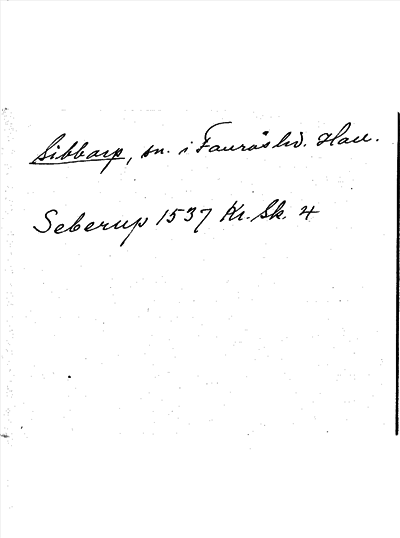 Sibbarp, sn. i Fauråshd. Hall.
Seberup 1537 Kr. Sk. 4